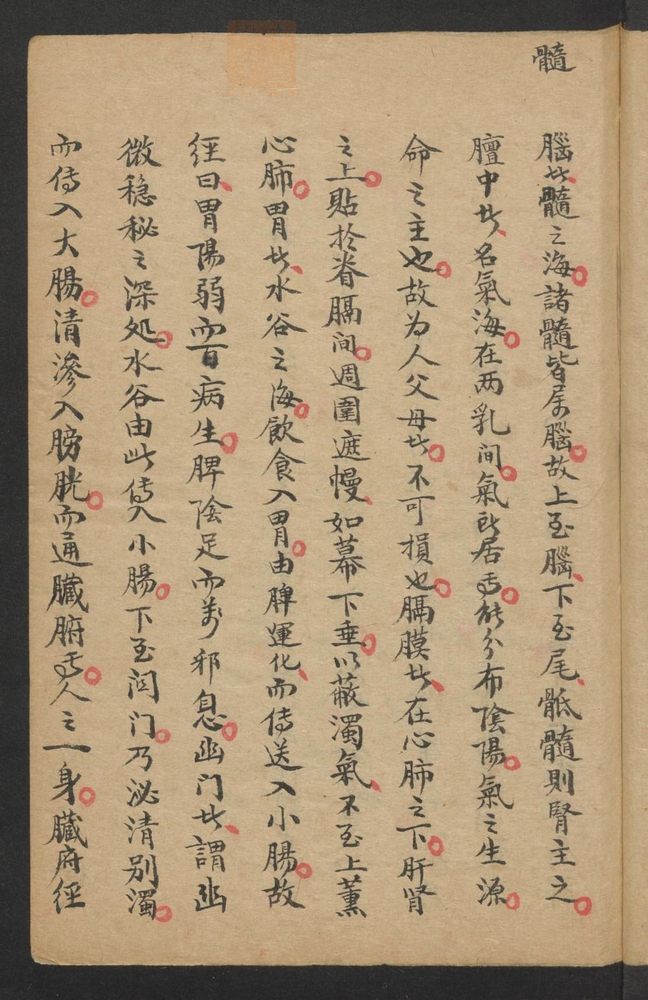 髓
腦者、髓之海。諸髓皆屬腦。故上至腦、下至尾骶、髓則腎主之。
膻中者、名氣海。在两乳間。氣所居焉。能分布陰陽。氣之生源。
命之主也。故为人父母者。不可損也。膈膜者、在心肺之下。肝腎
之上。貼於脊膈间。週圍遮幔、如幕下垂。以蔽濁氣、不至上薰
心肺。胃者、水谷之海。飲食入胃。由脾運化、而传送入小腸。故
经曰、胃陽弱而百病生。脾陰足而萬邪息。幽门者、謂幽
微穏秘之深処。水谷由此传入小腸。下至阑门。乃泌清别濁。
而传入大腸。清滲入膀胱。而通臓腑焉。人之一身。臓府经